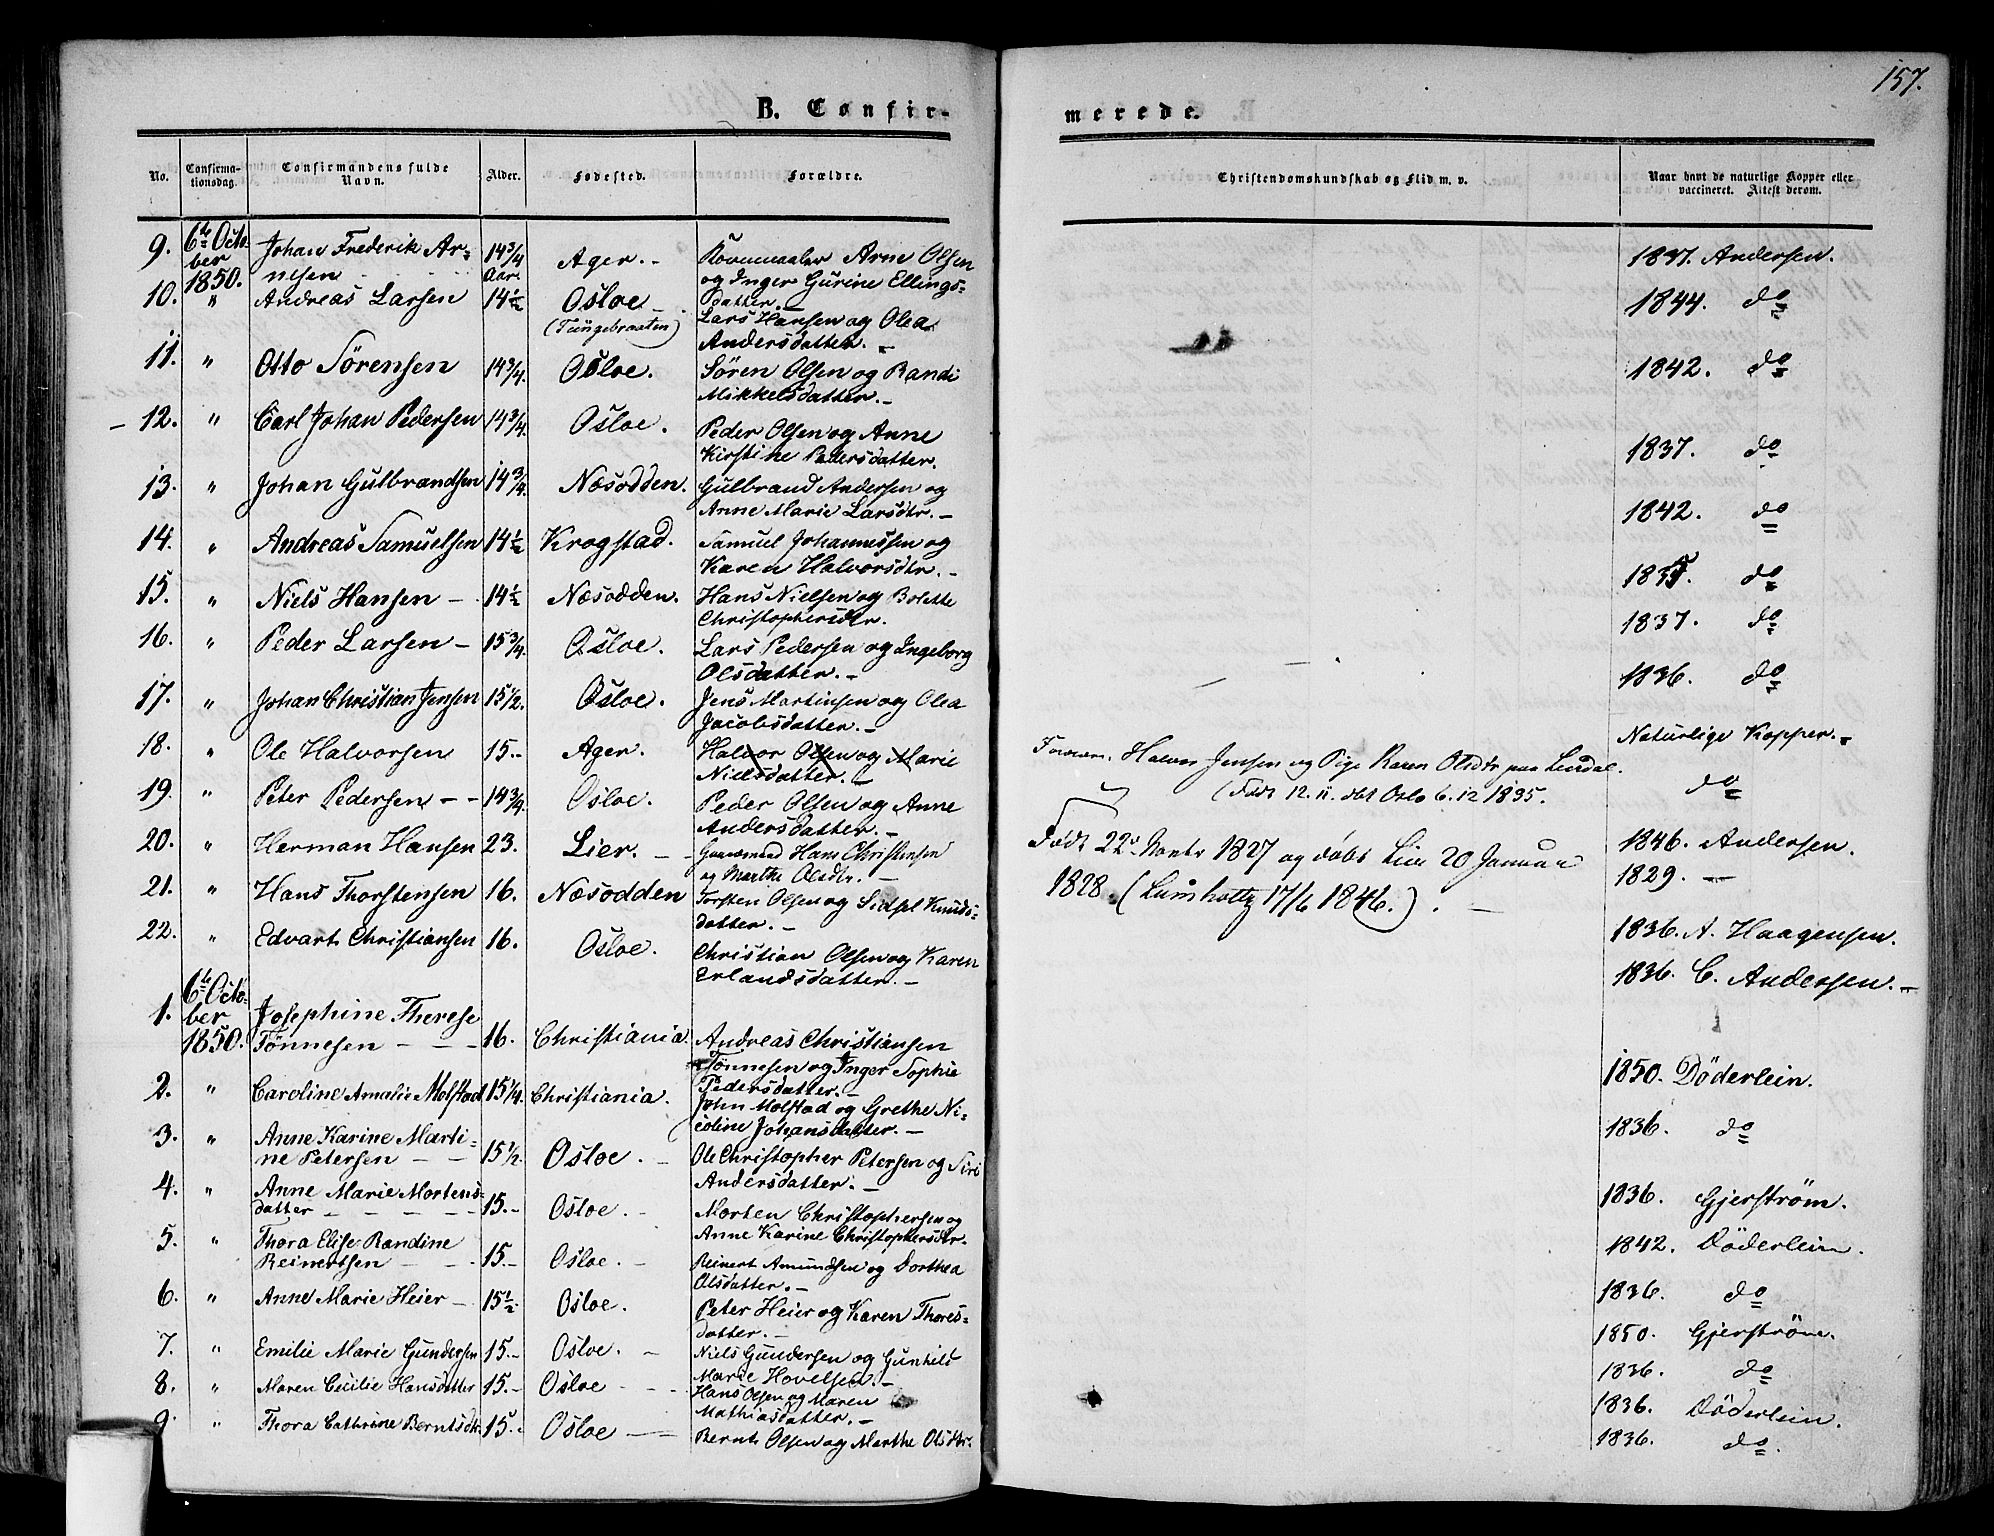 157.
B. Confir-
merede.
No.
Confirma-
tionsdag.
Confirmandens fulde
Navn.
Alder.
Fødested.
Forældre.
Christendomskundskab og Flid m. v.
Naar havt de naturlige Kopper eller
vaccineret. Attest derom.
9. 6te Octo- Johan Frederik Ar- 14 3/4 Ager. - Arne Olsen 1837. Andersen.
ber nesen Aar. og Inger Gurine Ellings-
1850. datter. -
10. " Andreas Larsen 14 1/2 Osloe Lars Hansen og Olea 1844. do
Andersdatter. -
11. " Otto Sörensen 14 3/4. Osloe. Sören Olsen og Randi 1842. do
Mikkelsdatter. -
- 12. " Carl Johan Pedersen 14 3/4. Osloe. Peder Olsen og Anne 1837. do
Kirstine Pedersdatter.
13. " Johan Gulbrandsen 14 3/4. Næsodden. Gulbrand Andersen og 1842. do
Anne Marie Larsdtr. -
14. " Andreas Samuelsen 14 1/2 Krogstad. Samuel Johannessen og do
Karen Halvorsdtr. -
15. " Niels Hansen - 14 1/2 Næsodden. Hans Nielsen og Bolette 1837. do
Christophersdtr.
16. " Peder Larsen - 15 3/4. Osloe. Lars Pedersen og Ingeborg 1836. do
Olsdatter. -
17. " Johan Christian Jensen 15 1/2. Osloe. Jens Martinsen og Olea Naturlige Kopper. -
Jacobsdatter. -
18. " Ole Halvorsen 15. - Ager. Halvor Olsen og Marie Halvor Jensen og Pige Karen Olsdtr paa do
Nielsdatter. - (Födt 12. 11. døbt Oslo 6. 12 1835.
19. " Peter Pedersen - - 14 3/4. Osloe. Peder Olsen og Anne 1846. Andersen.
Andersdatter. -
20. " Herman Hansen 23. Lier. - - Hans Christensen Födt 22d 1827 og döbt Lier 20 Januar 1829. -
og Marthe Olsdtr. - 1828. (Lumholtz 17/6 1846.). -
21. " Hans Thorstensen 16. Næsodden Torsten Olsen og Sidsel Knuds- 1836. A. Haagensen.
datter. -
22. " Edvart Christiansen 16. Osloe. Christian Olsen og Karen 1836. C. Andersen. -
Erlandsdatter. -
1. 6te Octo- Josephine Therese
ber
1850. Tönnesen - - - 16. Christiania. Andreas Christiansen 1850. Döderlein.
Tönnesen og Inger Sophie
Pedersdatter. -
2. " Caroline Amalie Molstad 15 1/4. Christiania. John Molstad og Grethe Ni- 1836. do
coline Johansdatter. -
3. " Anne Karine Marti-
ne Petersen - - 15 1/2. Osloe. - Ole Christopher Petersen og Siri 1836. Gjerström.
Andersdatter. -
4. " Anne Marie Mortens-
datter - - - - - 15. - Osloe. - Morten Christophersen og 1842. Döderlein.
Anne Karine Christophersdtr.
5. " Thora Elise Randine
Reinertsen - - 15. - Osloe. - Reinert Amundsen og Dorthea 1836. do
Olsdatter. -
6. " Anne Marie Heier - 15 1/2. Osloe. Peter Heier og Karen Thores- 1850. Gjerström.
datter. -
7. " Emilie Marie Gundersen 15. - Osloe. - Niels Gundersen og Gunhild 1836. do
Marie Hovelsen. -
8. " Maren Cecilie Hansdatter 15. - Osloe - - Hans Olsen og Maren 1836. Döderlein.
Mathiasdatter. -
9. " Thora Cathrine Berntsdtr. 15. - Osloe - - Bernt Olsen og Marthe Olsdtr. 1836. do.